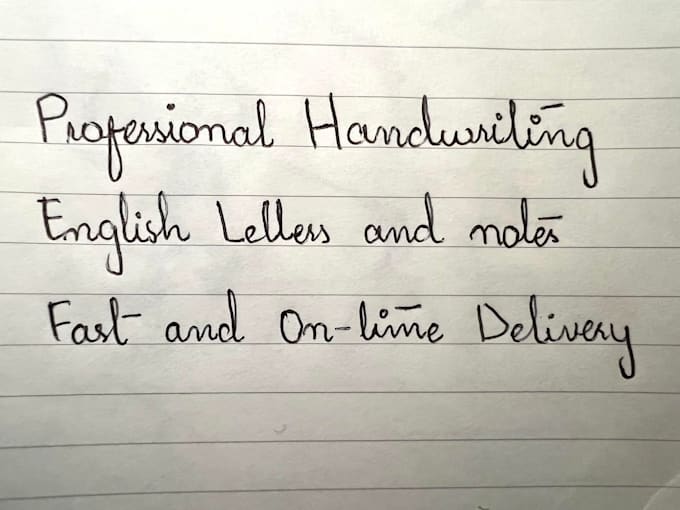 Professional Handwriting
English Letters and notes
Fast and On-time Delivery